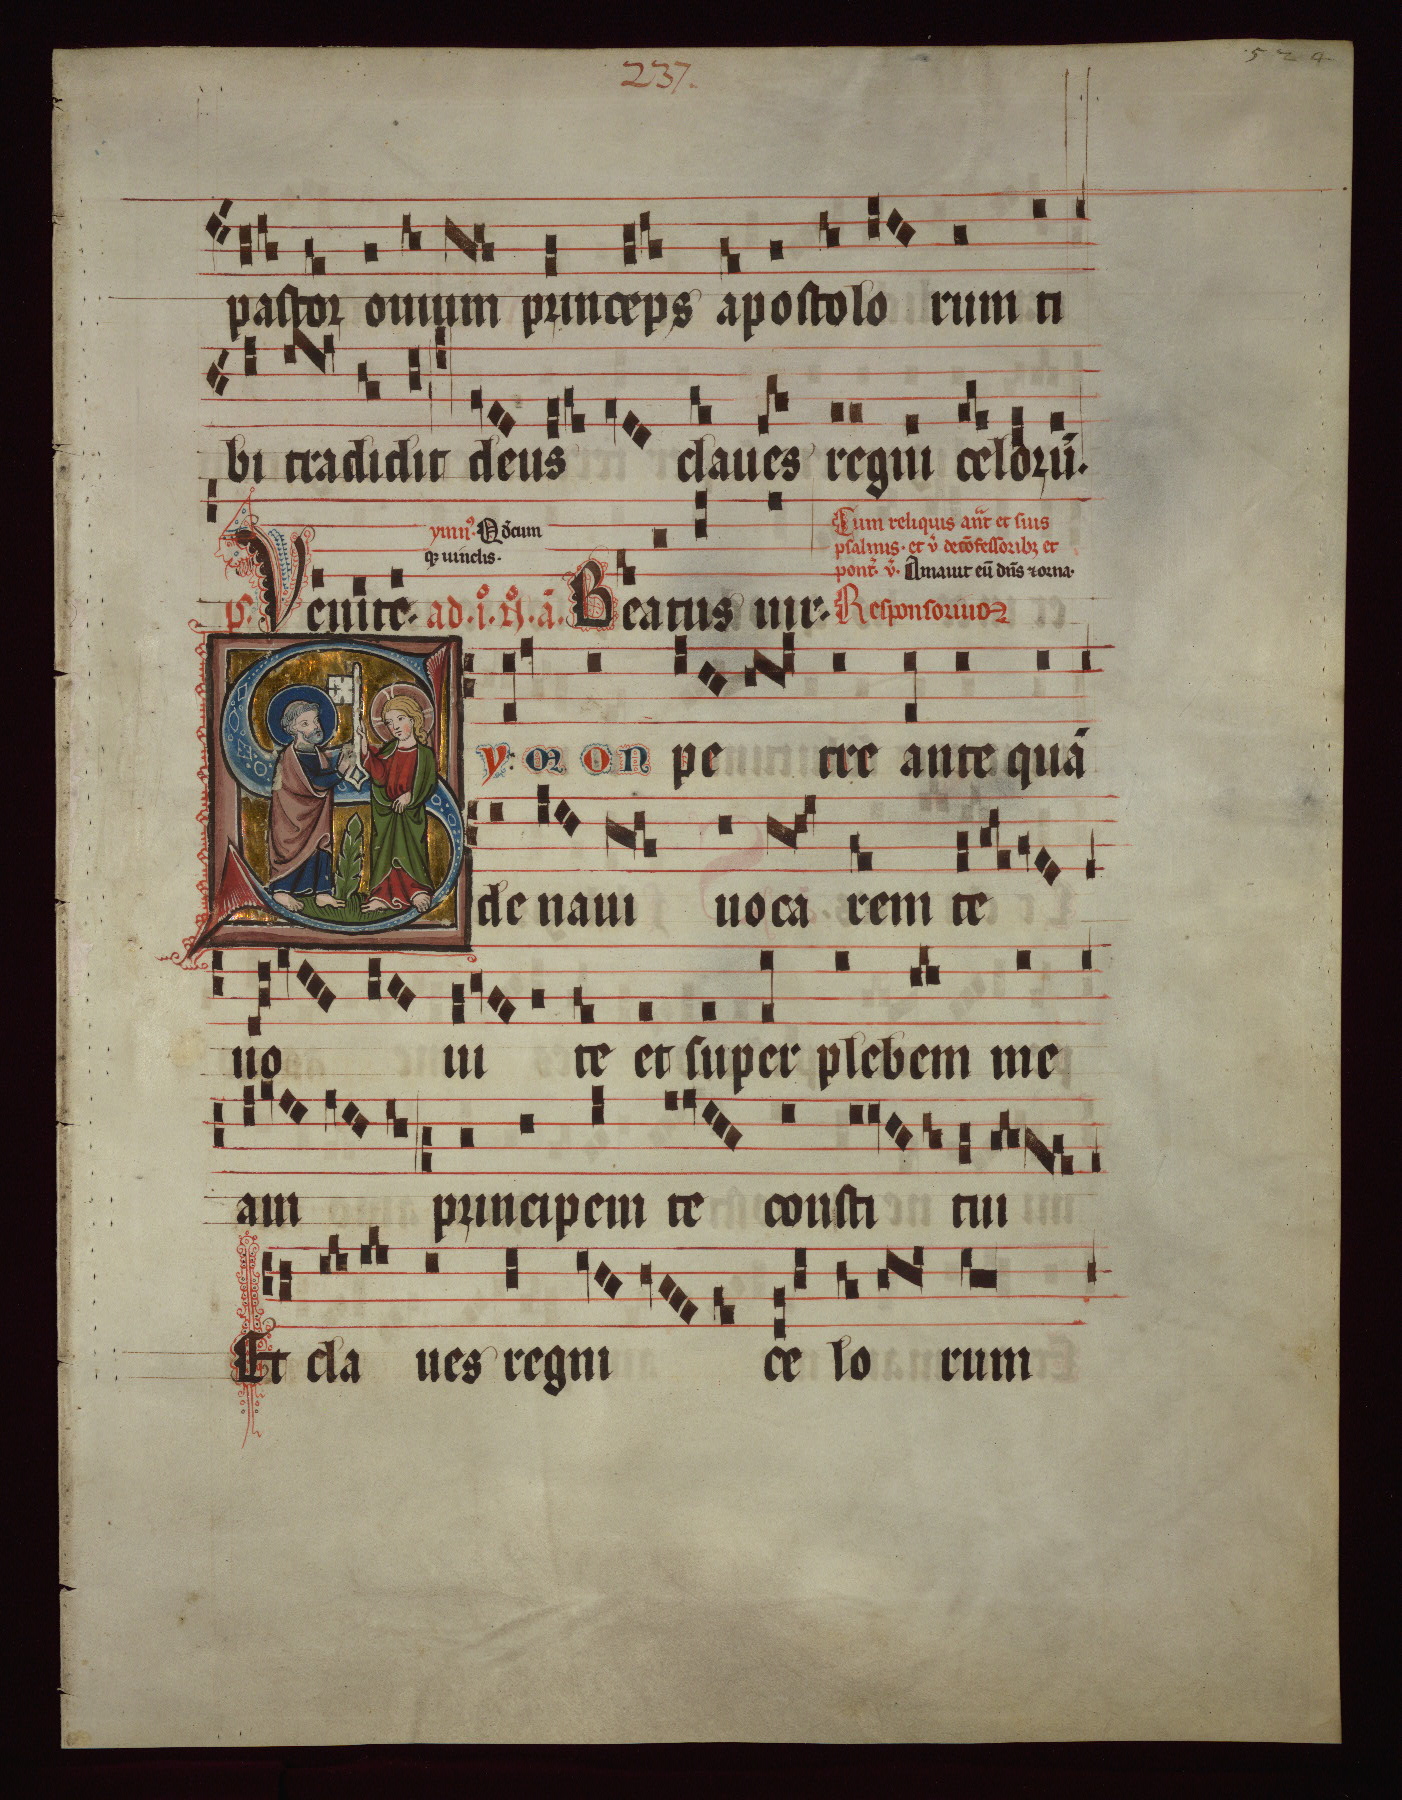 237.
524
pastor ouium princeps apostolo rum ti
bi tradidit deus claues regni celorū.
ymn⁹. Qd̄cum
qꝫ uinclis.
Cum reliquis ant̄ et suis
psalmis. et v̄ de cōfessoribꝫ et
pont̄. v̄. Amauit eū dn̄s ⁊ orna.
ps. Venite. ad .i. N. a. Beatus uir. Responsoriuꝫ
Sy mon pe tre ante quā
de naui uoca rem te
no ui te et super plebem me
am principem te consti tui
Et cla ues regni ce lo rum